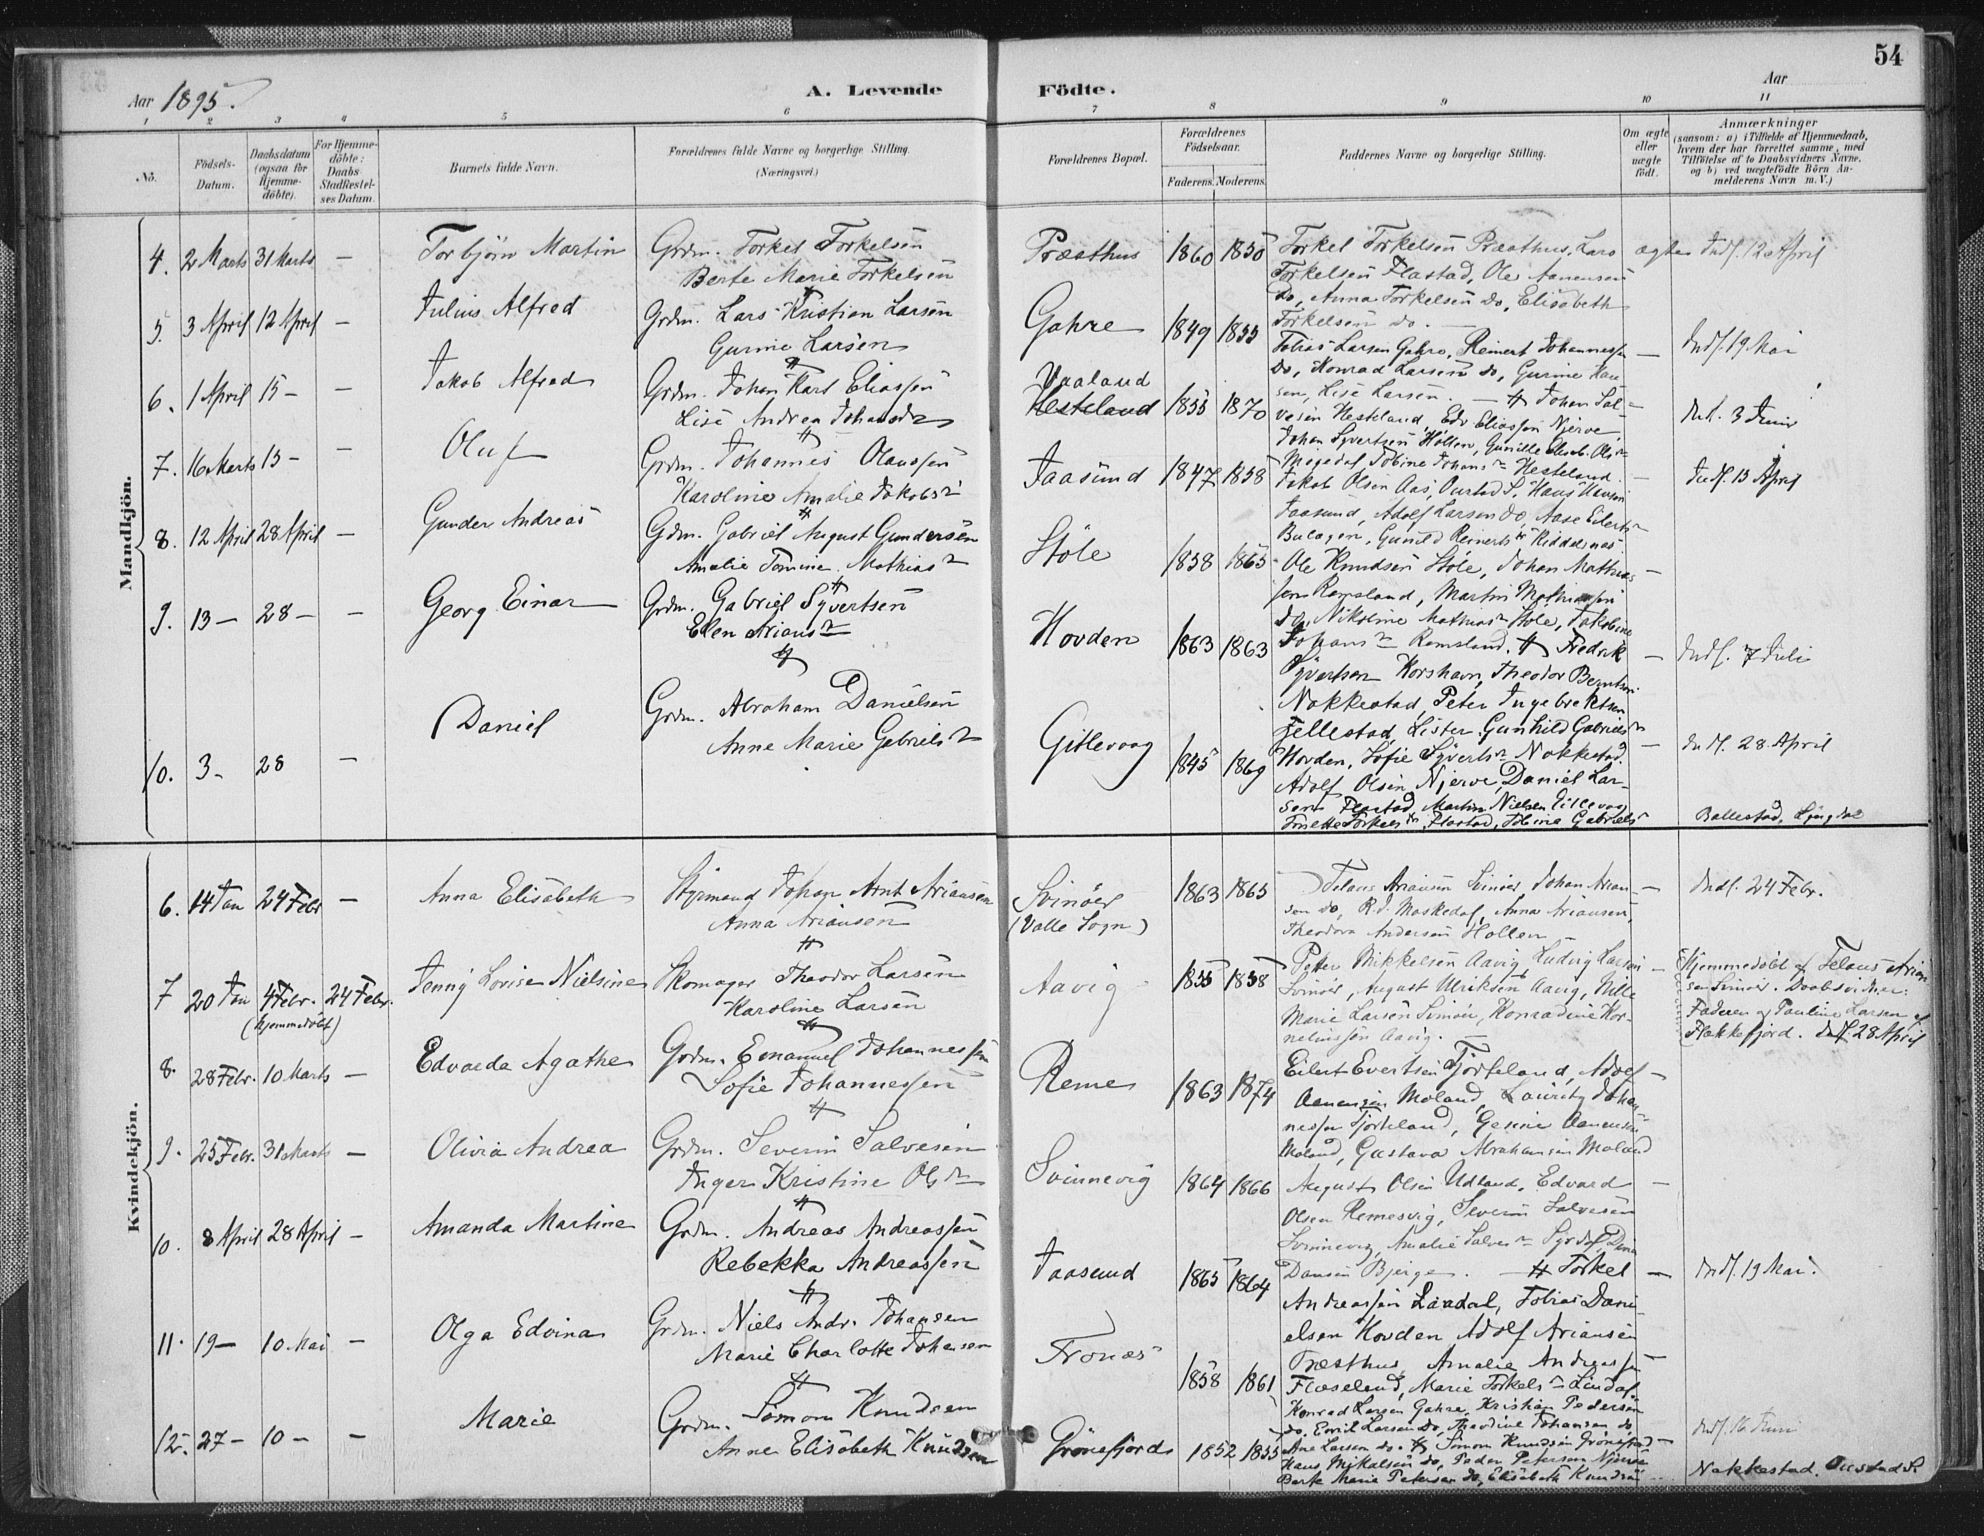 54
Aar 1895.
A. Levende Födte.
Aar
1 2 3 4 5 6 7 8 9 10 11
No.
Födsels-Datum.
Daabsdatum (ogsaa for Hjemme-döbte).
For Hjemme-döbte: Daabs Stadfæstel-ses Datum.
Barnets fulde Navn.
Forældrenes fulde Navne og borgerlige Stilling. (Næringsvei.)
Forældrenes Bopæl.
Forældrenes Födselsaar.
Faderens. Moderens.
Faddernes Navne og borgerlige Stilling.
Om ægte eller uægte födt.
Anmærkninger
(saasom: a) i Tilfælde af Hjemmedaab, hvem der har forrettet samme, med Tilföielse af to Daabsvidners Navne, og b) ved uægtefödte Börn An-melderens Navn m. V.)
Mandkjön.
4. 2 Marts 31 Marts — Torbjörn Martin Grdm. Torkel Torkelsen
Berte Marie Torkelsen
Præsthus 1860 1850 Torkel Torkelsen Præsthus, Lars ægte Indf. 12 April
Torkelsen Flastad, Ole Aanensen
Do, Anna Torkelsen do, Elisabeth
Torkelsen do.
5. 3 April 12 April — Julius Alfred Grdm. Lars Kristian Larsen
Gurine Larsen
Gahre 1849 1855 Tobias Larsen Gahre, Reinert Johannessen — Indf. 19 Mai
Do, Konrad Larsen do, Gurine
Lise Larsen.
6. 1 April 15 — — Jakob Alfred Grdm. Johan Karl Eliassen
Lise Andrea Johansd
Vaaland
Hesteland 1855 1870 Johan Sal-
vesen Hesteland, Edv Eliassen Njerve, Indf. 3 Juni
Johan Syvertsen Hollen,
Tobine Johans Hesteland
7. 16 Marts 15 — — Oluf Grdm. Johannes Olaussen
Karoline Amalie Jakobs
Jaasund 1847 1858 Jakob Olsen Aas, Oustad S. Hans Hansen Indf. 13 April
Jaasund, Adolf Larsen do, Aase Eilerts
8. 12 April 28 April — Gunder Andreas Gdm. Gabriel August Gundersen
Amalie Tomine Mathias
Stöle 1858 1865 Ole Knudsen Stöle, Johan Mathias-
sen Ramsland, Martin Mathiassen
Do, Nikoline Mathias Stöle, Jakobine
Johans Ramsland.
9. 13 — 28 — — Georg Einar Grdm. Gabriel Syvertsen
Elen Arians
Hovden 1863 1863 Fredrik — Indf. 7 Juli
Syvertsen Korshavn, Theodor Berntsen
Nokkestad, Peter Ingebrektsen
Fellestad, Lister, Gunhild Gabriels
Hovden, Sofie Syverts Nokkestad.
10. 3 — 28 — Daniel Grdm. Abraham Danielsen
Anne Marie Gabriels
Gitlevaag 1845 1869 — Indf. 28 April
Adolf Olsen Njerve, Daniel Lar-
sen Flastad, Martin Nielsen Gitlevaag
Flastad, Tobine Gabriels Ballestad, Lyngdal
Kvindekjön.
6. 14 Jan 24 Febr — Anna Elisabeth Styrmand Johan Arnt Ariansen
Anna Ariansen
Svinöer
(Valle Sogn)
1863 1865 Ariansen Svinöer Johan Arian- — Indf. 24 Febr.
sen do, Anna Ariansen,
Theodora Andersen Hollen
7 20 Jan 4 Febr. 24 Febr. Jenny Lovise Nielsine Skomager Theodor Larsen
(hjemmedöbt) Karoline Larsen
Aavig 1855 1858 Peter Mikkelsen Aavig, Ludvig Larsen — Hjemmedöbt af Arian-
Svinöer, August Ulriksen Aavig, sen Svinöer. Daabsvidner:
Marie Larsen Svinöer, Konradine Kor- Faderen og Pauline Larsen af
neliussen Aavig. Flekkefjord. Indf. 28 April
8. 28 Febr. 10 Marts — Edvarda Agathe Grdm. Emanuel Johannessen
Sofie Johannessen
Reme 1863 1874 Eilert Evertsen Tjörteland, Adolf —
Aanensen Moland, Lauritz Johan-
nessen Tjörteland, Gesine Aanensen
Moland, Gustava Abrahamsen Moland
9. 25 Febr. 31 Marts — Olivia Andrea Grdm. Severin Salvesen
Inger Kristine Ols
Svinnevig 1864 1866 August Olsen Udland, Edvard —
Olsen Remesvig, Severin Salvesen
Svinnevig, Amalie Salves
Bjerge.
10. 8 April 28 April — Amanda Martine Grdm. Andreas Andreassen
Rebekka Andreassen
Jaasund 1865 1864 Torkel — Indf. 19 Mai.
Andreassen Laadal, Tobias Dani-
elsen Hovden Adolf Ariansen
Præsthus, Amalie Andreassen
Marie Torkels Lindal
11. 19 — 10 Mai — Olga Edvina Grdm. Niels Andr. Johansen
Marie Charlotte Johansen
Tronæs 1858 1861
Konrad Larsen Gahre, Kristian Pedersen
do, Emil Larsen do, Theodine Johansen do,
Ane Larsen do.
12. 27 — 10 — — Marie Grdm. Simon Knudsen
Anne Elisabeth Knudsen
Grönsfjord 1852 1855 Simon Knudsen Grönsfjord — Indf. 16 Juni
Hans Mikalsen do, Peder Petersen
Berte Marie Petersen do, Elisabeth Knudsen Nokkestad. Oustad S.